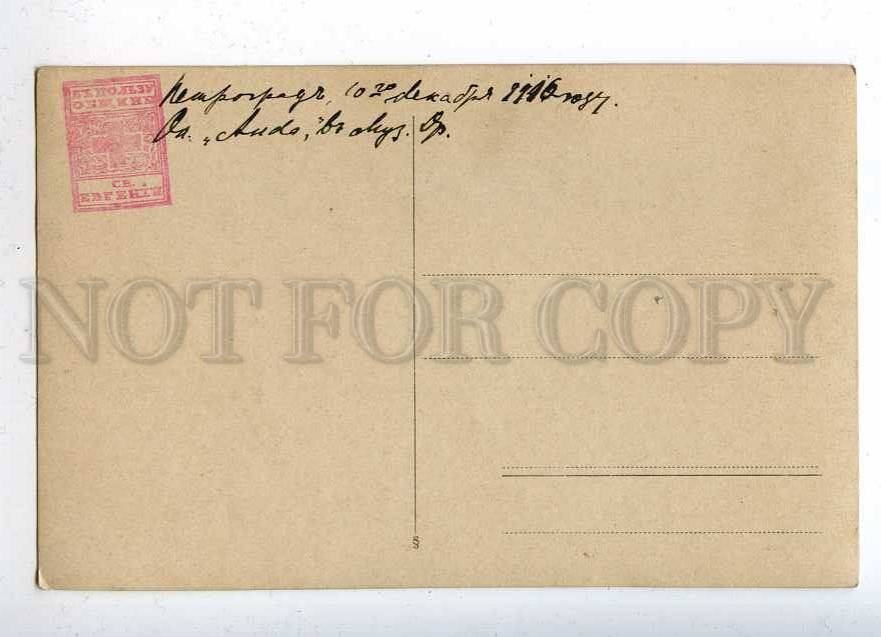 ВЪ ПОЛЬЗУ
ОБЩИНЫ
СВ.
ЕВГЕНІИ
Петроградъ, 10го декабря 1916 году.
въ Муз. Др.
NOT FOR COPY